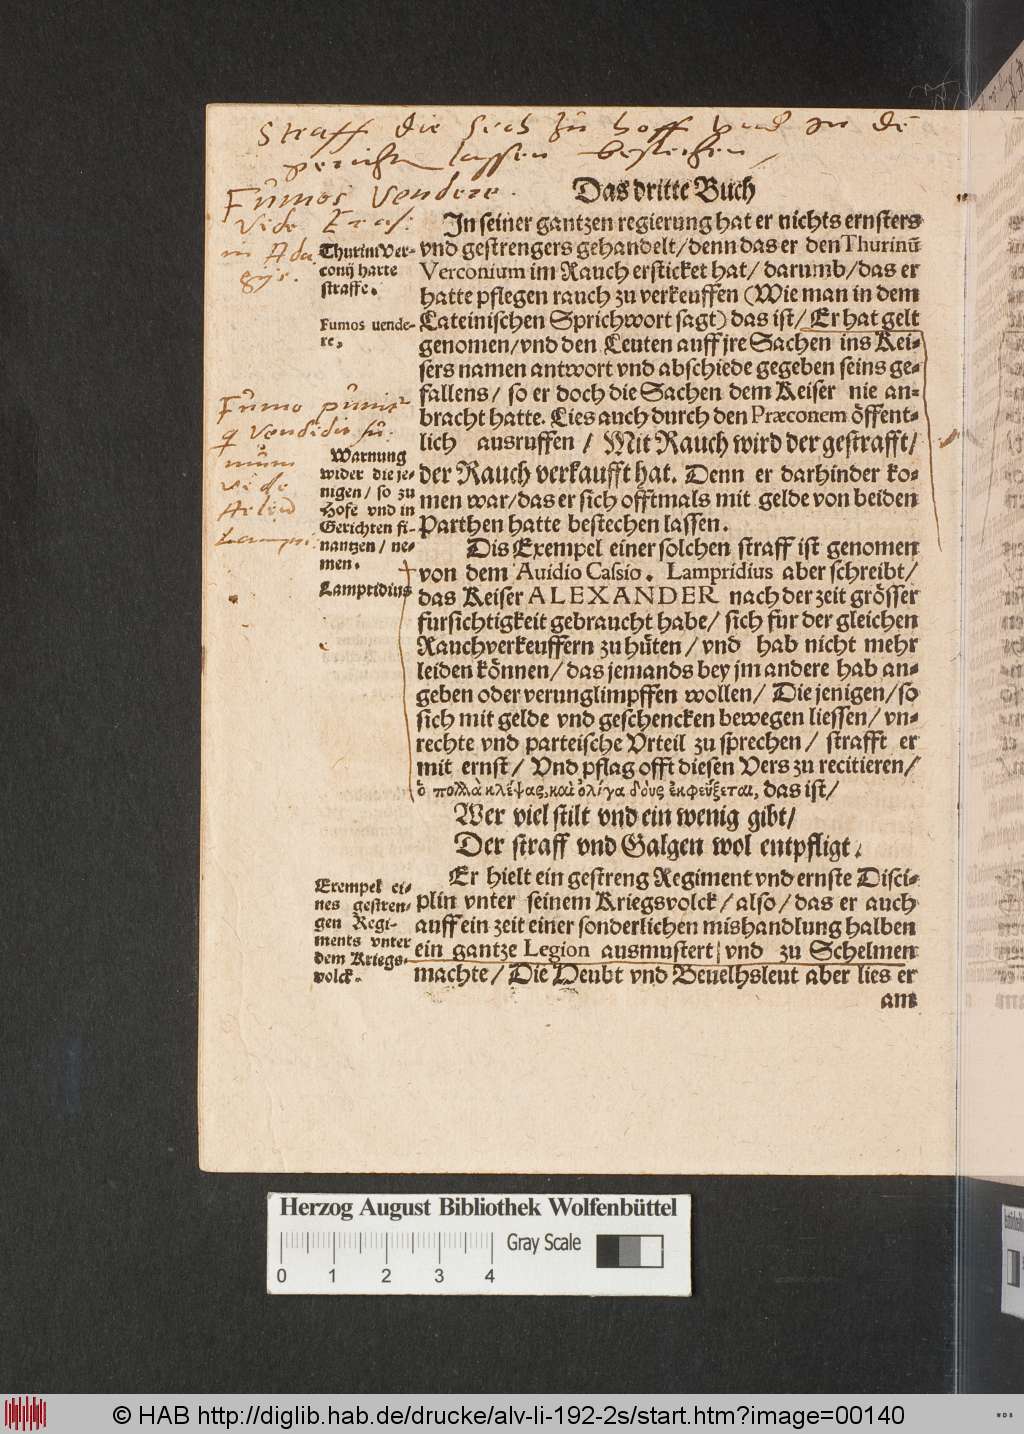 Straff die sich zu hoff vnd in de
gericht lassen bestechen
Fumos Vendere.
vide Eras:
in Ada
gijs.
Das dritte Buch
Thurini Ver-
conij harte
straffe.
Fumos uende-
re.
In seiner gantzen regierung hat er nichts ernsters
vnd gestrengers gehandelt/ denn das er den Thurinū
Verconium im Rauch ersticket hat/ darumb/ das er
hatte pflegen rauch zu verkeuffen (Wie man in dem
Lateinischen Sprichwort sagt) das ist/ Er hat gelt
genomen/ vnd den Leuten auff jre Sachen ins Kei-
sers namen antwort vnd abschiede gegeben seins ge-
fallens/ so er doch die Sachen dem Keiser nie an-
bracht hatte. Lies auch durch den Præconem öffent-
lich ausruffen / Mit Rauch wird der gestrafft/
der Rauch verkaufft hat. Denn er darhinder ko-
men war/ das er sich offtmals mit gelde von beiden
Parthen hatte bestechen lassen.
Fumo punit
q vendidit fu
mum
vide
Lampri.
Warnung
wider die je-
nigen/ so zu
Hofe vnd in
Gerichten fi-
nantzen / ne-
men.
Lampridius
Dis Exempel einer solchen straff ist genomen
von dem Auidio Cassio. Lampridius aber schreibt/
das Keiser ALEXANDER nach der zeit grösser
fursichtigkeit gebraucht habe/ sich fur der gleichen
Rauchverkeuffern zu hüten / vnd hab nicht mehr
leiden können / das jemands bey jm andere hab an-
geben oder verunglimpffen wollen/ Die jenigen/ so
sich mit gelde vnd geschencken bewegen liessen/ vn-
rechte vnd parteische Vrteil zu sprechen / strafft er
mit ernst/ Vnd pflag offt diesen Vers zu recitieren/
ὁ πολλὰ κλέψας, καὶ ὀλίγα δοὺς ἐκφεύξεται, das ist/
Wer viel stilt vnd ein wenig gibt/
Der straff vnd Galgen wol entpfligt.
Exempel ei-
nes gestren-
gen Regi-
ments vnter
dem Kriegs-
volck.
Er hielt ein gestreng Regiment vnd ernste Disci-
plin vnter seinem Kriegsvolck/ also/ das er auch
auff ein zeit einer sonderlichen mishandlung halben
ein gantze Legion ausmustert/ vnd zu Schelmen
machte/ Die Heubt vnd Beuelhsleut aber lies er
am
Herzog August Bibliothek Wolfenbüttel
Gray Scale
0 1 2 3 4
© HAB http://diglib.hab.de/drucke/alv-li-192-2s/start.htm?image=00140